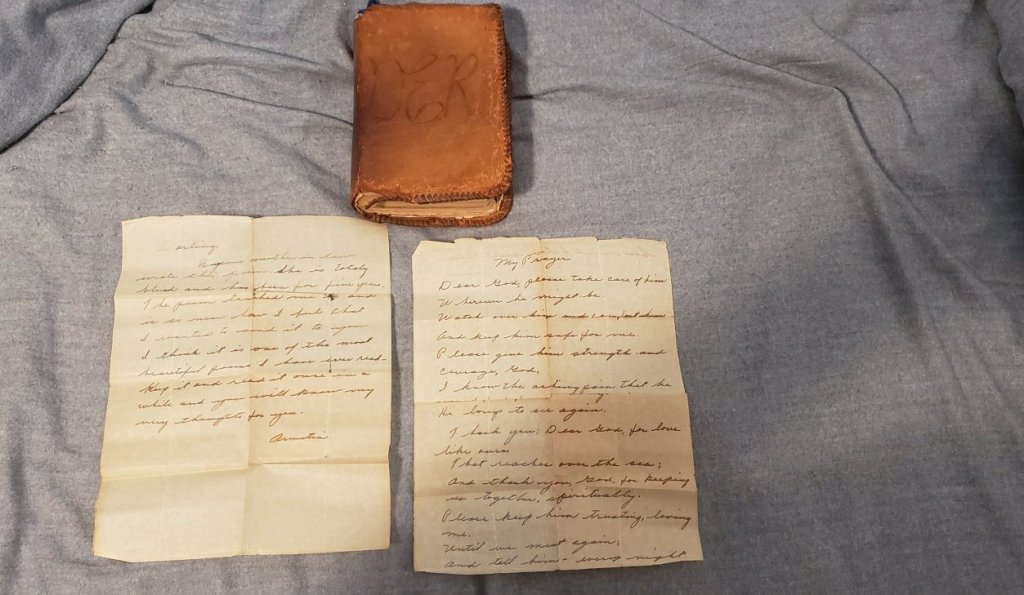 ER
Byrons mother in law
wrote this poem. She is totaly
blind and has been for five yrs.
The poem touched me so and
is so near how I feel that
I wanted to send it to you
I think it is one of the most
beautiful poems I have ever read-
Keep it and read it once in a
while and you will know my
very thoughts for you.
My Prayer
Dear God, please take care of him
Wherever he might be.
Watch over him and comfort him
And keep him safe for me.
Please give him strength and
courage, God.
I know the aching pain that he
He longs to see again.
Thank you, Dear God, for love
like ours
That reaches over the sea;
And thank you, God, for keeping
us together, spiritually.
Please keep him trusting, loving
me.
Until we meet again;
And tell him - every night